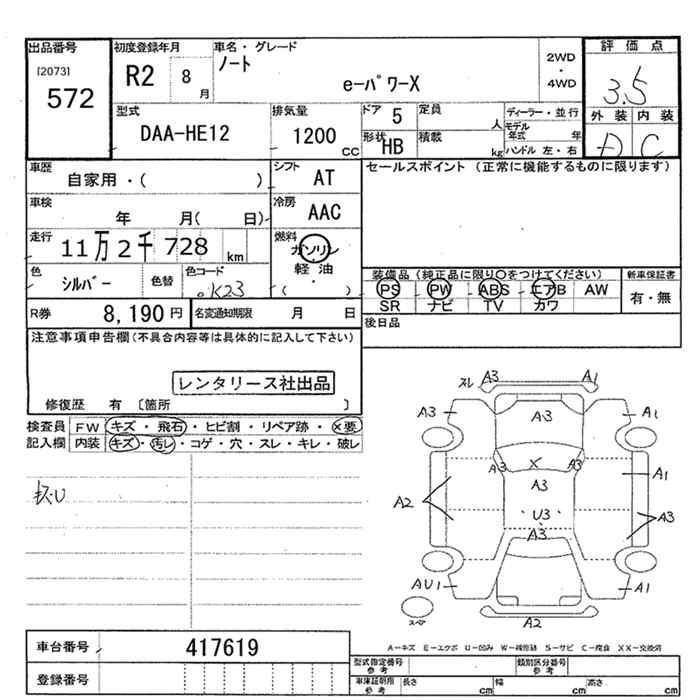 出品番号 初度登録年月 車名・グレード 評価点
[2073] 572 R2 8月 ノート e-パワーX 2WD・4WD 3.5
外装 内装
D C
型式 排気量 ドア 定員 ディーラー・並行
DAA-HE12 1200cc 5 人 モデル年式 年
形状 HB 積載 kg ハンドル 左・右
車歴 シフト セールスポイント (正常に機能するものに限ります)
自家用・( ) AT
車検 冷房
年 月( 日) AAC
走行 燃料
11万2千728km ガソリン
軽油
・
( )
色 色替 色コード
シルバー K23
装備品 (純正品に限り○をつけてください) 新車保証書
PS PW ABS エアB AW 有・無
SR ナビ TV カワ
R券 8,190円 名変通知期限 月 日 後日品
注意事項申告欄(不具合内容等は具体的に記入して下さい)
レンタリース社出品
修復歴 有 〔箇所 〕
検査員記入欄 FW キズ・飛石・ヒビ割・リペア跡・×要
内装 キズ・汚レ・コゲ・穴・スレ・キレ・破レ
スレ A3 A1
A3 A3 A1
A3 X A3
A3 A1
A2 U3 A3
A3
AU1 A1
スペア A2
車台番号 417619
A-キズ E-エクボ U-凹み W-補修跡 S-サビ C-腐食 XX-交換済
登録番号
型式指定番号 参考 類別区分番号 参考
車庫証明用 参考 長さ cm 幅 cm 高さ cm